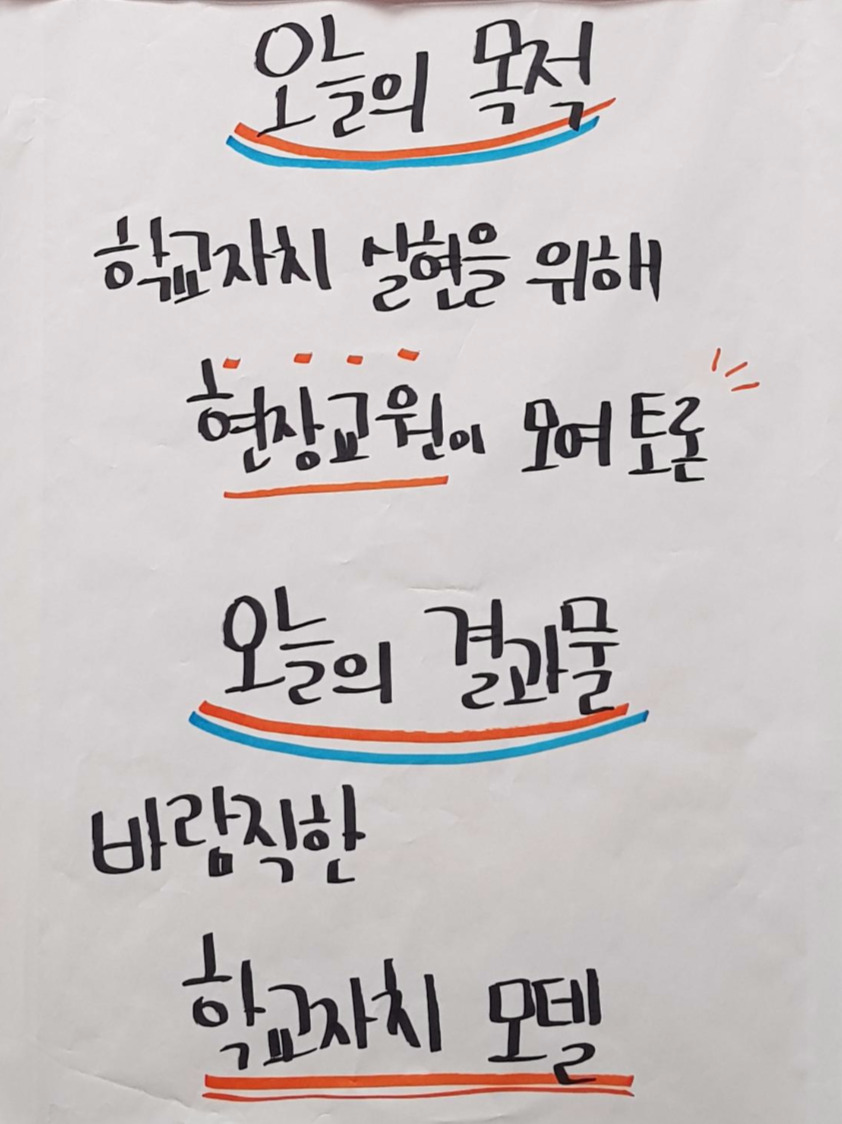 오늘의 목적
학교자치 실현을 위해
현장교원이 모여 토론
오늘의 결과물
바람직한
학교자치 모델